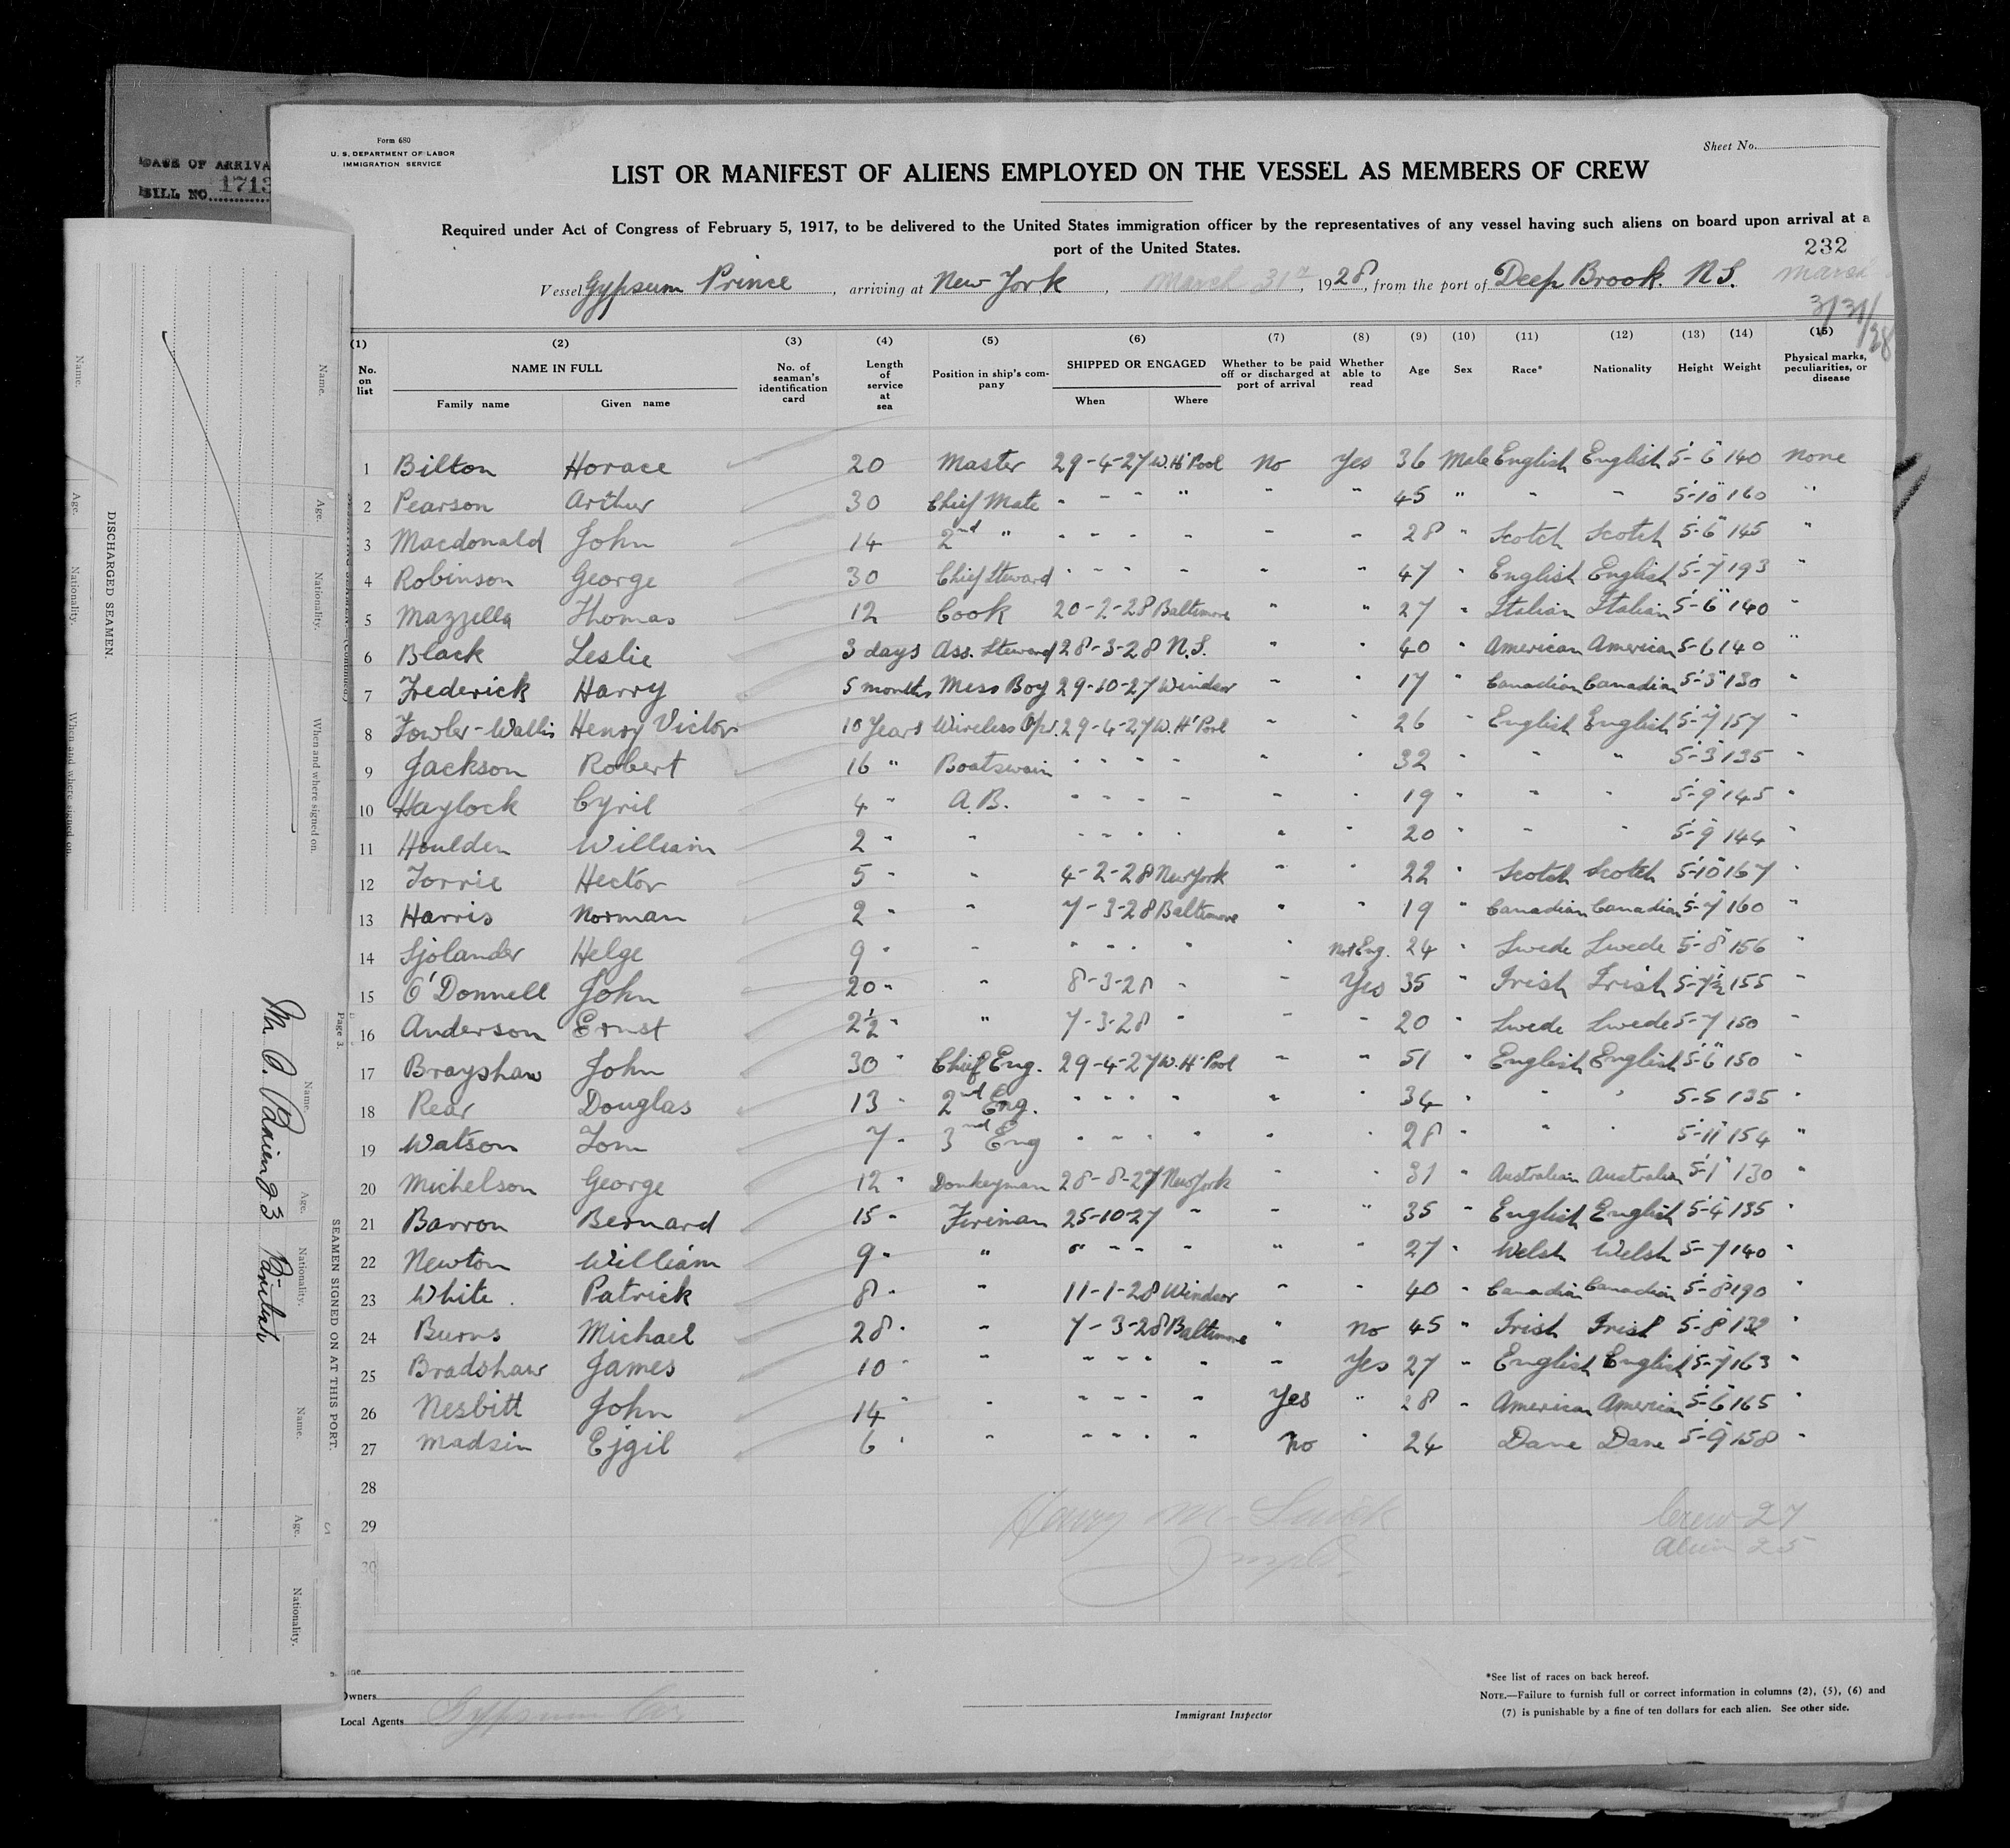 DATE OF ARRIVA
BILL NO. 1713
Form 680
U. S. DEPARTMENT OF LABOR
IMMIGRATION SERVICE
Sheet No.
LIST OR MANIFEST OF ALIENS EMPLOYED ON THE VESSEL AS MEMBERS OF CREW
Required under Act of Congress of February 5, 1917, to be delivered to the United States immigration officer by the representatives of any vessel having such aliens on board upon arrival at a
port of the United States.
232
Vessel Gypsum Prince, arriving at New York, March 31st, 1928, from the port of Deep Brook. N.S.
3/31/28
(1) (2) (3) (4) (5) (6) (7) (8) (9) (10) (11) (12) (13) (14) (15)
No. on list NAME IN FULL Family name Given name No. of seaman's identification card Length of service at sea Position in ship's company SHIPPED OR ENGAGED When Where Whether to be paid off or discharged at port of arrival Whether able to read Age Sex Race* Nationality Height Weight Physical marks, peculiarities, or disease
1 Bilton Horace 20 Master 29-4-27 W. H' Pool No Yes 36 Male English English 5'-6" 140 None
2 Pearson Arthur 30 Chief Mate - - - " - " 45 " - - 5'-10" 160 "
3 Macdonald John 14 2nd " - - - - - - 28 " Scotch Scotch 5'-6" 145 "
4 Robinson George 30 Chief Steward - - - - " " 47 " English English 5'-7" 193 "
5 Mazzella Thomas 12 Cook 20-2-28 Baltimore " " 27 " Italian Italian 5'-6" 140 "
6 Black Leslie 3 days Ass. Steward 28-3-28 N.S. " " 40 " American American 5-6 140 "
7 Frederick Harry 5 months Mess Boy 29-10-27 Windsor - " 17 " Canadian Canadian 5'-3" 130 "
8 Fowler-Wallis Henry Victor 10 Years Wireless Opr. 29-4-27 W. H' Pool - " 26 " English English 5'-7" 157 "
9 Jackson Robert 16 " Boatswain - - - - - " 32 " - " 5'-3" 135 "
10 Haylock Cyril 4 " A.B. - - - - - " 19 " " " 5'-9" 145 "
11 Houlden William 2 " " - - - - " " 20 " - " 5'-9" 144 "
12 Torrie Hector 5 " " 4-2-28 New York - " 22 " Scotch Scotch 5'-10" 167 "
13 Harris Norman 2 " " 7-3-28 Baltimore " " 19 " Canadian Canadian 5'-7" 160 "
14 Sjolander Helge 9 " - " - - " " Not Eng. 24 " Swede Swede 5'-8" 156 "
15 O'Donnell John 20 " " 8-3-28 " - Yes 35 " Irish Irish 5-7½ 155 "
16 Anderson Ernst 2½ " " 7-3-28 " - - 20 " Swede Swede 5-7 150 "
17 Brayshaw John 30 " Chief Eng. 29-4-27 W. H' Pool - " 51 " English English 5'-6" 150 "
18 Rear Douglas 13 " 2nd Eng. " " " " " " 34 " " " 5-5 135 "
19 Watson Tom 7 " 3nd Eng - - - " " " 28 " " " 5'-11" 154 "
20 Michelson George 12 " Donkeyman 28-8-27 New York - " 31 " Australian Australian 5'-1" 130 "
21 Barron Bernard 15 " Fireman 25-10-27 " - " 35 " English English 5'-4" 135 "
22 Newton William 9 " " " - - - " " 27 " Welsh Welsh 5-7 140 "
23 White. Patrick 8 " " 11-1-28 Windsor - - 40 " Canadian Canadian 5'-8" 190 "
24 Burns Michael 28 " " 7-3-28 Baltimore " No 45 " Irish Irish 5'-8" 132 "
25 Bradshaw James 10 " " - - - - - Yes 27 " English English 5'-7" 163 "
26 Nesbitt John 14 " " - - - - Yes " 28 " American American 5'-6" 165 "
27 Madsin Ejgil 6 " " - - - - No " 24 Dane Dane 5'-9" 158 "
28
29
30
Crew 27
Alien 25
Owners
Local Agents Gypsum Co.
Immigrant Inspector
*See list of races on back hereof.
NOTE.—Failure to furnish full or correct information in columns (2), (5), (6) and
(7) is punishable by a fine of ten dollars for each alien. See other side.
DISCHARGED SEAMEN.
Name. Age. Nationality. When and where signed on.
Name. Age. Nationality. When and where signed on.
Page 3.
SEAMEN SIGNED ON AT THIS PORT.
Name. Age. Nationality.
Name. Age. Nationality.